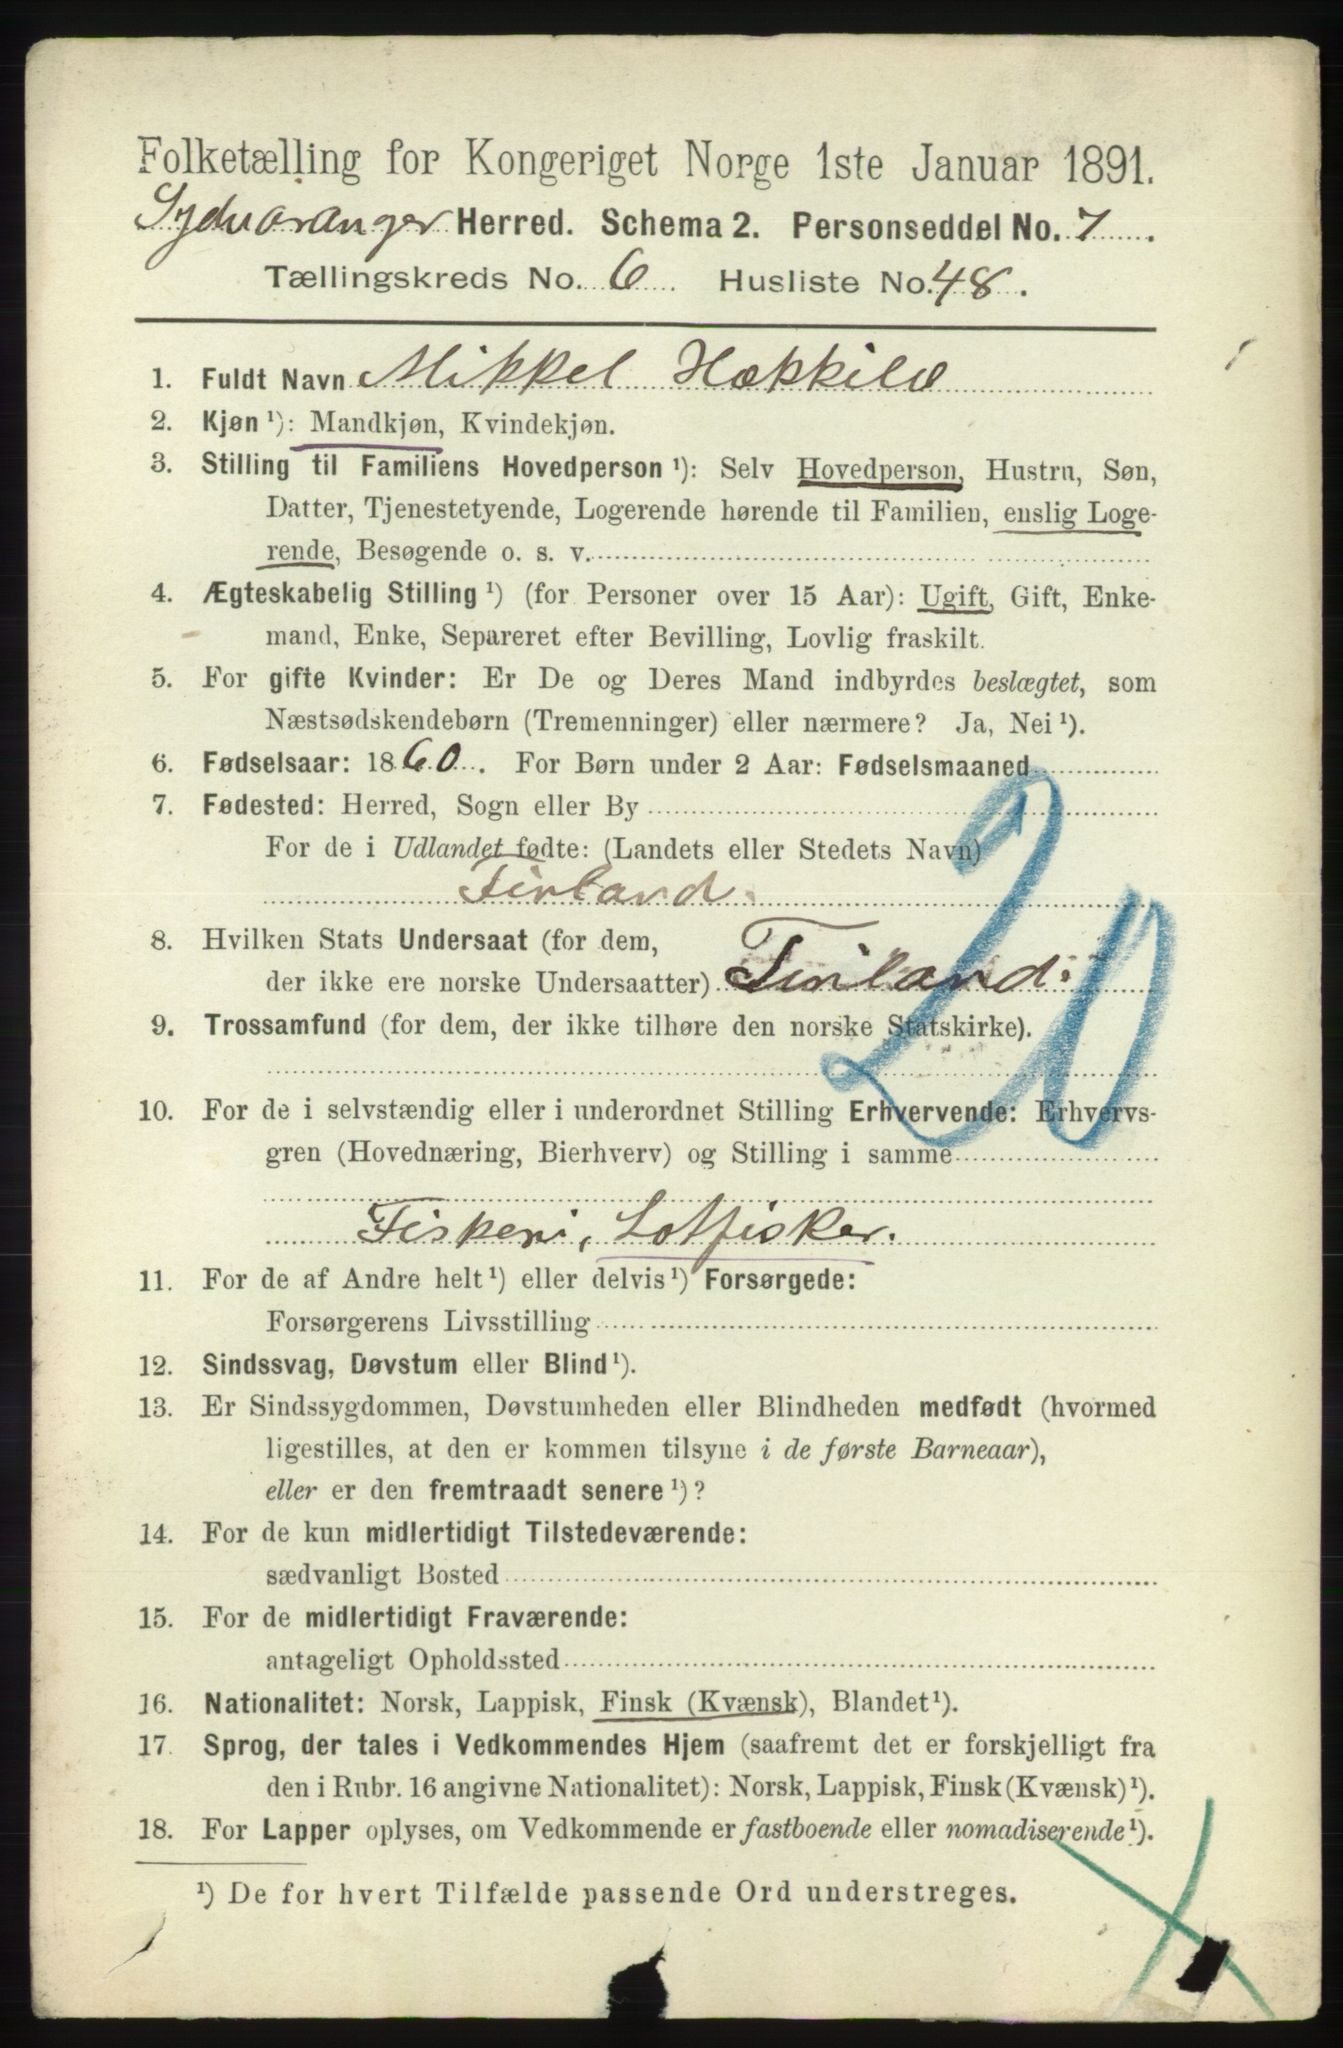 Folketælling for Kongeriget Norge 1ste Januar 1891.
Sydvaranger Herred. Schema 2. Personseddel No. 7.
Tællingskreds No. 6. Husliste No. 48.
1. Fuldt Navn Mikkel Hækkilæ
2. Kjøn ¹): Mandkjøn, Kvindekjøn.
3. Stilling til Familiens Hovedperson ¹): Selv Hovedperson, Hustru, Søn,
Datter, Tjenestetyende, Logerende hørende til Familien, enslig Loge-
rende, Besøgende o. s. v.
4. Ægteskabelig Stilling ¹) (for Personer over 15 Aar): Ugift, Gift, Enke-
mand, Enke, Separeret efter Bevilling, Lovlig fraskilt.
5. For gifte Kvinder: Er De og Deres Mand indbyrdes beslægtet, som
Næstsødskendebørn (Tremenninger) eller nærmere? Ja, Nei ¹).
6. Fødselsaar: 1860. For Børn under 2 Aar: Fødselsmaaned
7. Fødested: Herred, Sogn eller By
For de i Udlandet fødte: (Landets eller Stedets Navn)
Finland.
8. Hvilken Stats Undersaat (for dem,
der ikke ere norske Undersaatter) Finland.
9. Trossamfund (for dem, der ikke tilhøre den norske Statskirke).
20
10. For de i selvstændig eller i underordnet Stilling Erhvervende: Erhvervs-
gren (Hovednæring, Bierhverv) og Stilling i samme
Fiskeri, Lotfisker.
11. For de af Andre helt ¹) eller delvis ¹) Forsørgede:
Forsørgerens Livsstilling
12. Sindssvag, Døvstum eller Blind ¹).
13. Er Sindssygdommen, Døvstumheden eller Blindheden medfødt (hvormed
ligestilles, at den er kommen tilsyne i de første Barneaar),
eller er den fremtraadt senere ¹)?
14. For de kun midlertidigt Tilstedeværende:
sædvanligt Bosted
15. For de midlertidigt Fraværende:
antageligt Opholdssted
16. Nationalitet: Norsk, Lappisk, Finsk (Kvænsk), Blandet ¹).
17. Sprog, der tales i Vedkommendes Hjem (saafremt det er forskjelligt fra
den i Rubr. 16 angivne Nationalitet): Norsk, Lappisk, Finsk (Kvænsk) ¹).
18. For Lapper oplyses, om Vedkommende er fastboende eller nomadiserende ¹).
¹) De for hvert Tilfælde passende Ord understreges.